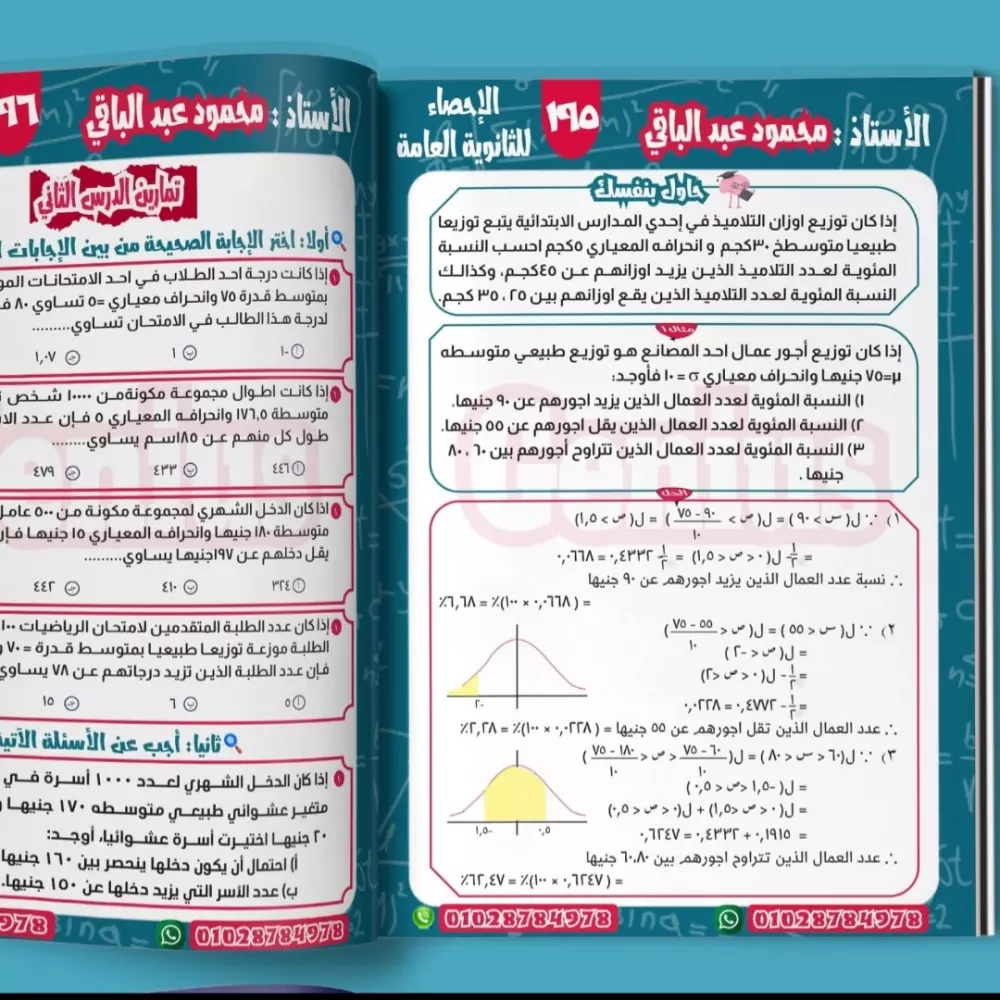 الأستاذ : محمود عبد الباقي
١٩٥
الإحصاء
للثانوية العامة
حاول بنفسك
إذا كان توزيع اوزان التلاميذ في إحدي المدارس الابتدائية يتبع توزيعا
طبيعيا متوسطخ ٣٠كجم و انحرافه المعياري ٥كجم احسب النسبة
المئوية لعدد التلاميذ الذين يزيد اوزانهم عن ٤٥كجم، وكذالك
النسبة المئوية لعدد التلاميذ الذين يقع اوزانهم بين ٢٥ ، ٣٥ كجم.
مثال ١
إذا كان توزيع أجور عمال احد المصانع هو توزيع طبيعي متوسطه
μ=٧٥ جنيها وانحراف معياري σ = ١٠ فأوجد:
١) النسبة المئوية لعدد العمال الذين يزيد اجورهم عن ٩٠ جنيها.
٢) النسبة المئوية لعدد العمال الذين يقل اجورهم عن ٥٥ جنيها.
٣) النسبة المئوية لعدد العمال الذين تتراوح أجورهم بين ٦٠ ، ٨٠
جنيها .
الحل
١) ∵ ل( س > ٩٠ ) = ل( ص > (٩٠ - ٧٥)/١٠ ) = ل( ص > ١,٥)
= ١/٢ - ل( ٠ < ص < ١,٥) = ١/٢ - ٠,٤٣٣٢ = ٠,٠٦٦٨
∴ نسبة عدد العمال الذين يزيد اجورهم عن ٩٠ جنيها
= ( ٠,٠٦٦٨ × ١٠٠)٪ = ٦,٦٨٪
٢) ∵ ل( س < ٥٥ ) = ل( ص < (٥٥ - ٧٥)/١٠ )
= ل( ص < -٢ )
= ١/٢ - ل( ٠ < ص < ٢)
= ١/٢ - ٠,٤٧٧٢ = ٠,٠٢٢٨
-٢
∴ عدد العمال الذين تقل اجورهم عن ٥٥ جنيها = ( ٠,٠٢٢٨ × ١٠٠)٪ = ٢,٢٨٪
٣) ∵ ل(٦٠ < س < ٨٠ ) = ل( (٦٠ - ٧٥)/١٠ < ص < (٨٠ - ٧٥)/١٠ )
= ل( -١,٥ < ص < ٠,٥ )
= ل( ٠ < ص < ١,٥) + ل(٠ < ص < ٠,٥)
= ٠,١٩١٥ + ٠,٤٣٣٢ = ٠,٦٢٤٧
-١,٥ ٠,٥
∴ عدد العمال الذين تتراوح اجورهم بين ٦٠،٨٠ جنيها
= ( ٠,٦٢٤٧ × ١٠٠)٪ = ٦٢,٤٧٪
01028784978
01028784978
الأستاذ : محمود عبد الباقي
٩٦
تمارين الدرس الثاني
أولا: اختر الإجابة الصحيحة من بين الإجابات
إذا كانت درجة احد الطلاب في احد الامتحانات
بمتوسط قدرة ٧٥ وانحراف معياري =٥ تساوي ٨٠
لدرجة هذا الطالب في الامتحان تساوي.........
أ -١ ب ١ ج ١,٠٧
إذا كانت اطوال مجموعة مكونةمن ١٠٠٠٠ شخص
متوسطة ١٧٦,٥ وانحرافه المعياري ٥ فإن عدد
طول كل منهم عن ١٨٥سم يساوي.........
أ ٤٤٦ ب ٤٣٣ ج ٤٧٩
إذا كان الدخل الشهري لمجموعة مكونة من ٥٠٠ عامل
متوسطة ١٨٠ جنيها وانحرافه المعياري ١٥ جنيها
يقل دخلهم عن ١٩٧جنيها يساوي.........
أ ٣٢٤ ب ٤١٠ ج ٤٤٢
إذا كان عدد الطلبة المتقدمين لامتحان الرياضيات ١٠٠
الطلبة موزعة توزيعا طبيعيا بمتوسط قدرة = ٧٠
فإن عدد الطلبة الذين تزيد درجاتهم عن ٧٨ يساوي
أ ٥ ب ٦ ج ١٥
ثانيا: أجب عن الأسئلة الآتية
إذا كان الدخل الشهري لعدد ١٠٠٠ أسرة في
متغير عشوائي طبيعي متوسطه ١٧٠ جنيها
٢٠ جنيها اختيرت أسرة عشوائيا، أوجد:
أ) احتمال أن يكون دخلها ينحصر بين ١٦٠ جنيها
ب) عدد الأسر التي يزيد دخلها عن ١٥٠ جنيها.
01028784978
978
Genius